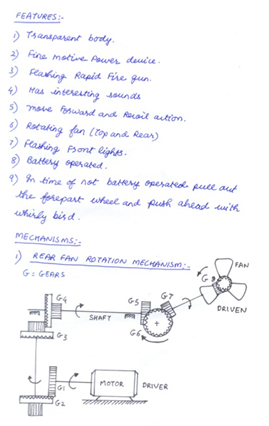 FEATURES:-
1) Transparent body.
2) Fine motive Power device.
3) Flashing Rapid Fire gun.
4) Has interesting sounds
5) Move Forward and Recoil action.
6) Rotating fan (Top and Rear)
7) Flashing Front lights.
8) Battery operated.
9) In time of not battery operated pull out
the forepart wheel and push ahead with
whirly bird.
MECHANISMS:-
1) REAR FAN ROTATION MECHANISM:-
G = GEARS
FAN
G8
G4
G5
G7
SHAFT
DRIVEN
G3
G6
G1
MOTOR
DRIVER
G2